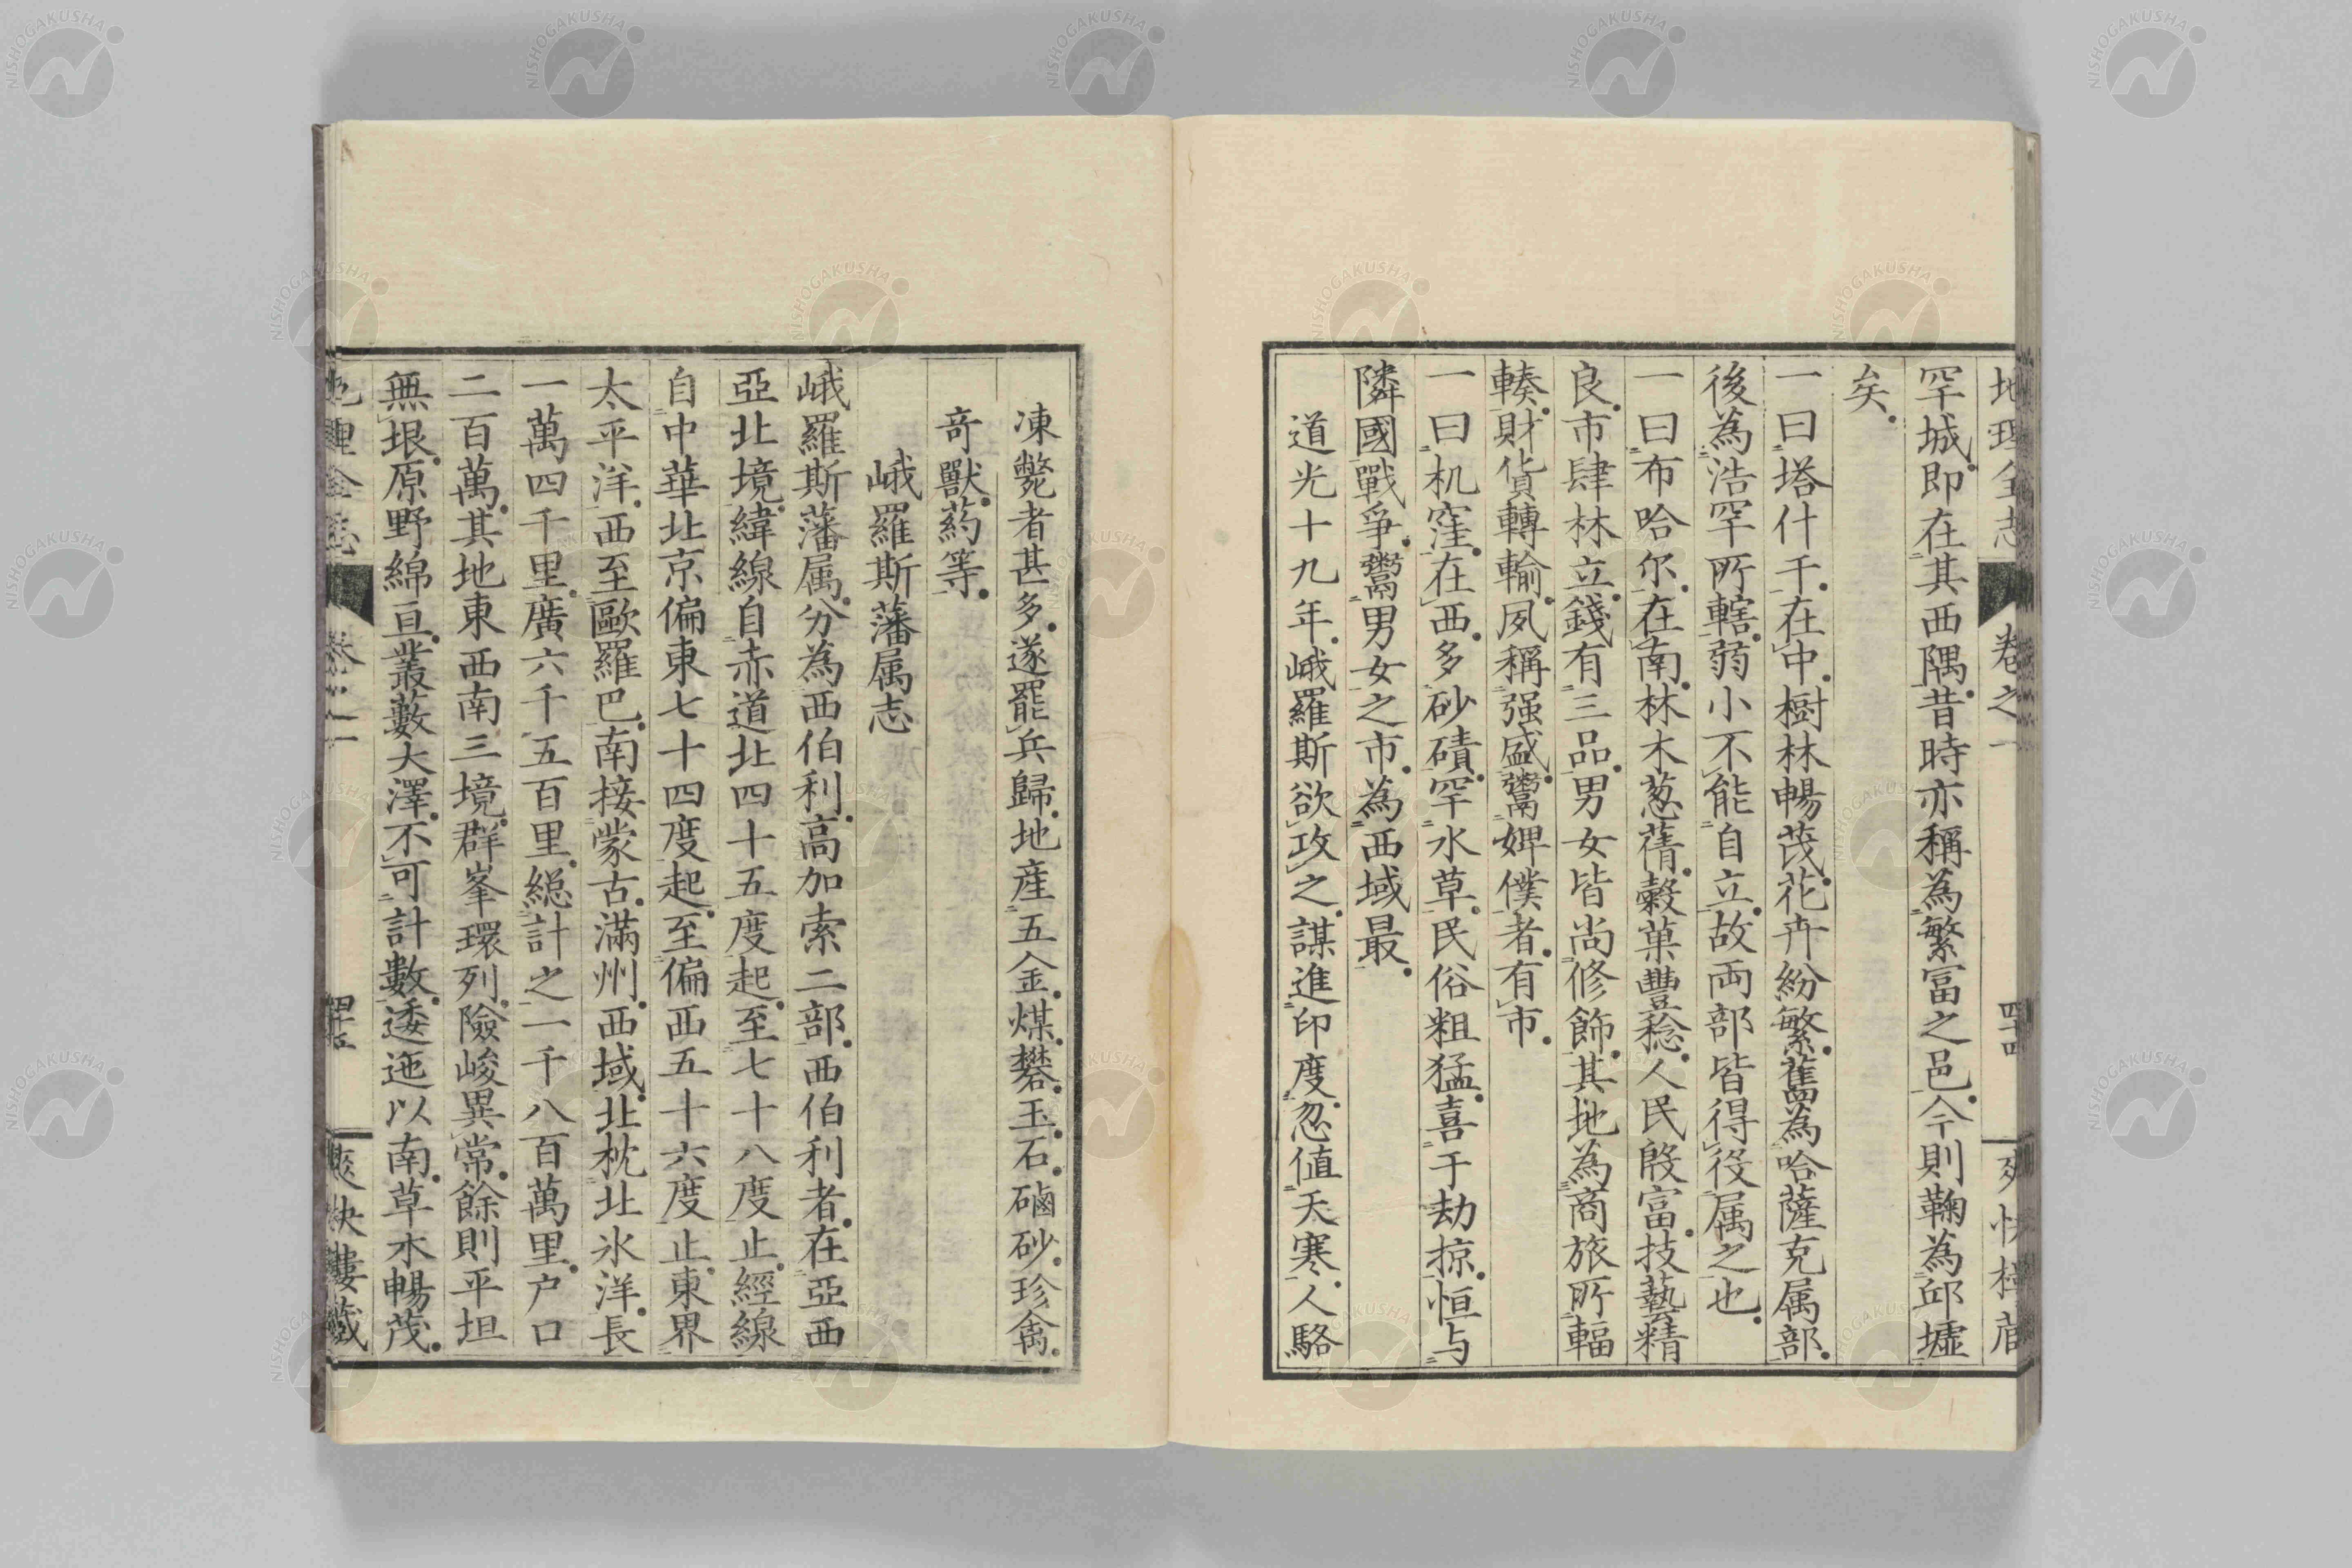 地理全志 卷之一 四十四 爽快樓藏
罕城。即在其西隅。昔時亦稱為繁富之邑。今則鞠為邱墟
矣。
一曰塔什干。在中。樹林暢茂。花卉紛繁。舊為哈薩克属部。
後為浩罕所轄。弱小不能自立。故両部皆得役属之也。
一曰布哈尔。在南。林木葱蒨。穀菓豐稔。人民殷富。技藝精
良。市肆林立。錢有三品。男女皆尚修飾。其地為商旅所輻
輳。財貨轉輸。夙稱强盛。鬻婢僕者。有市。
一曰机窪。在西。多砂磧。罕水草。民俗粗猛。喜于劫掠。恒与
隣國戰爭。鬻男女之市。為西域最。
道光十九年。峨羅斯欲攻之。謀進印度。忽値天寒。人駱
凍斃者甚多。遂罷兵歸。地産五金。煤。礬。玉。石。磠砂。珍禽。
竒獸。药等。
峨羅斯藩属志
峨羅斯藩属。分為西伯利。高加索二部。西伯利者。在亞西
亞北境。緯線自赤道北四十五度起。至七十八度止。經線
自中華北京偏東七十四度起。至偏西五十六度止。東界
太平洋。西至歐羅巴。南接蒙古。滿州。西域。北枕北氷洋。長
一萬四千里。廣六千五百里。総計之一千八百萬里。户口
二百萬。其地東西南三境。群峯環列。險峻異常。餘則平坦
無垠。原野綿亘。叢藪大澤。不可計數。逶迤以南。草木暢茂。
地理全志 卷之一 爽快樓藏